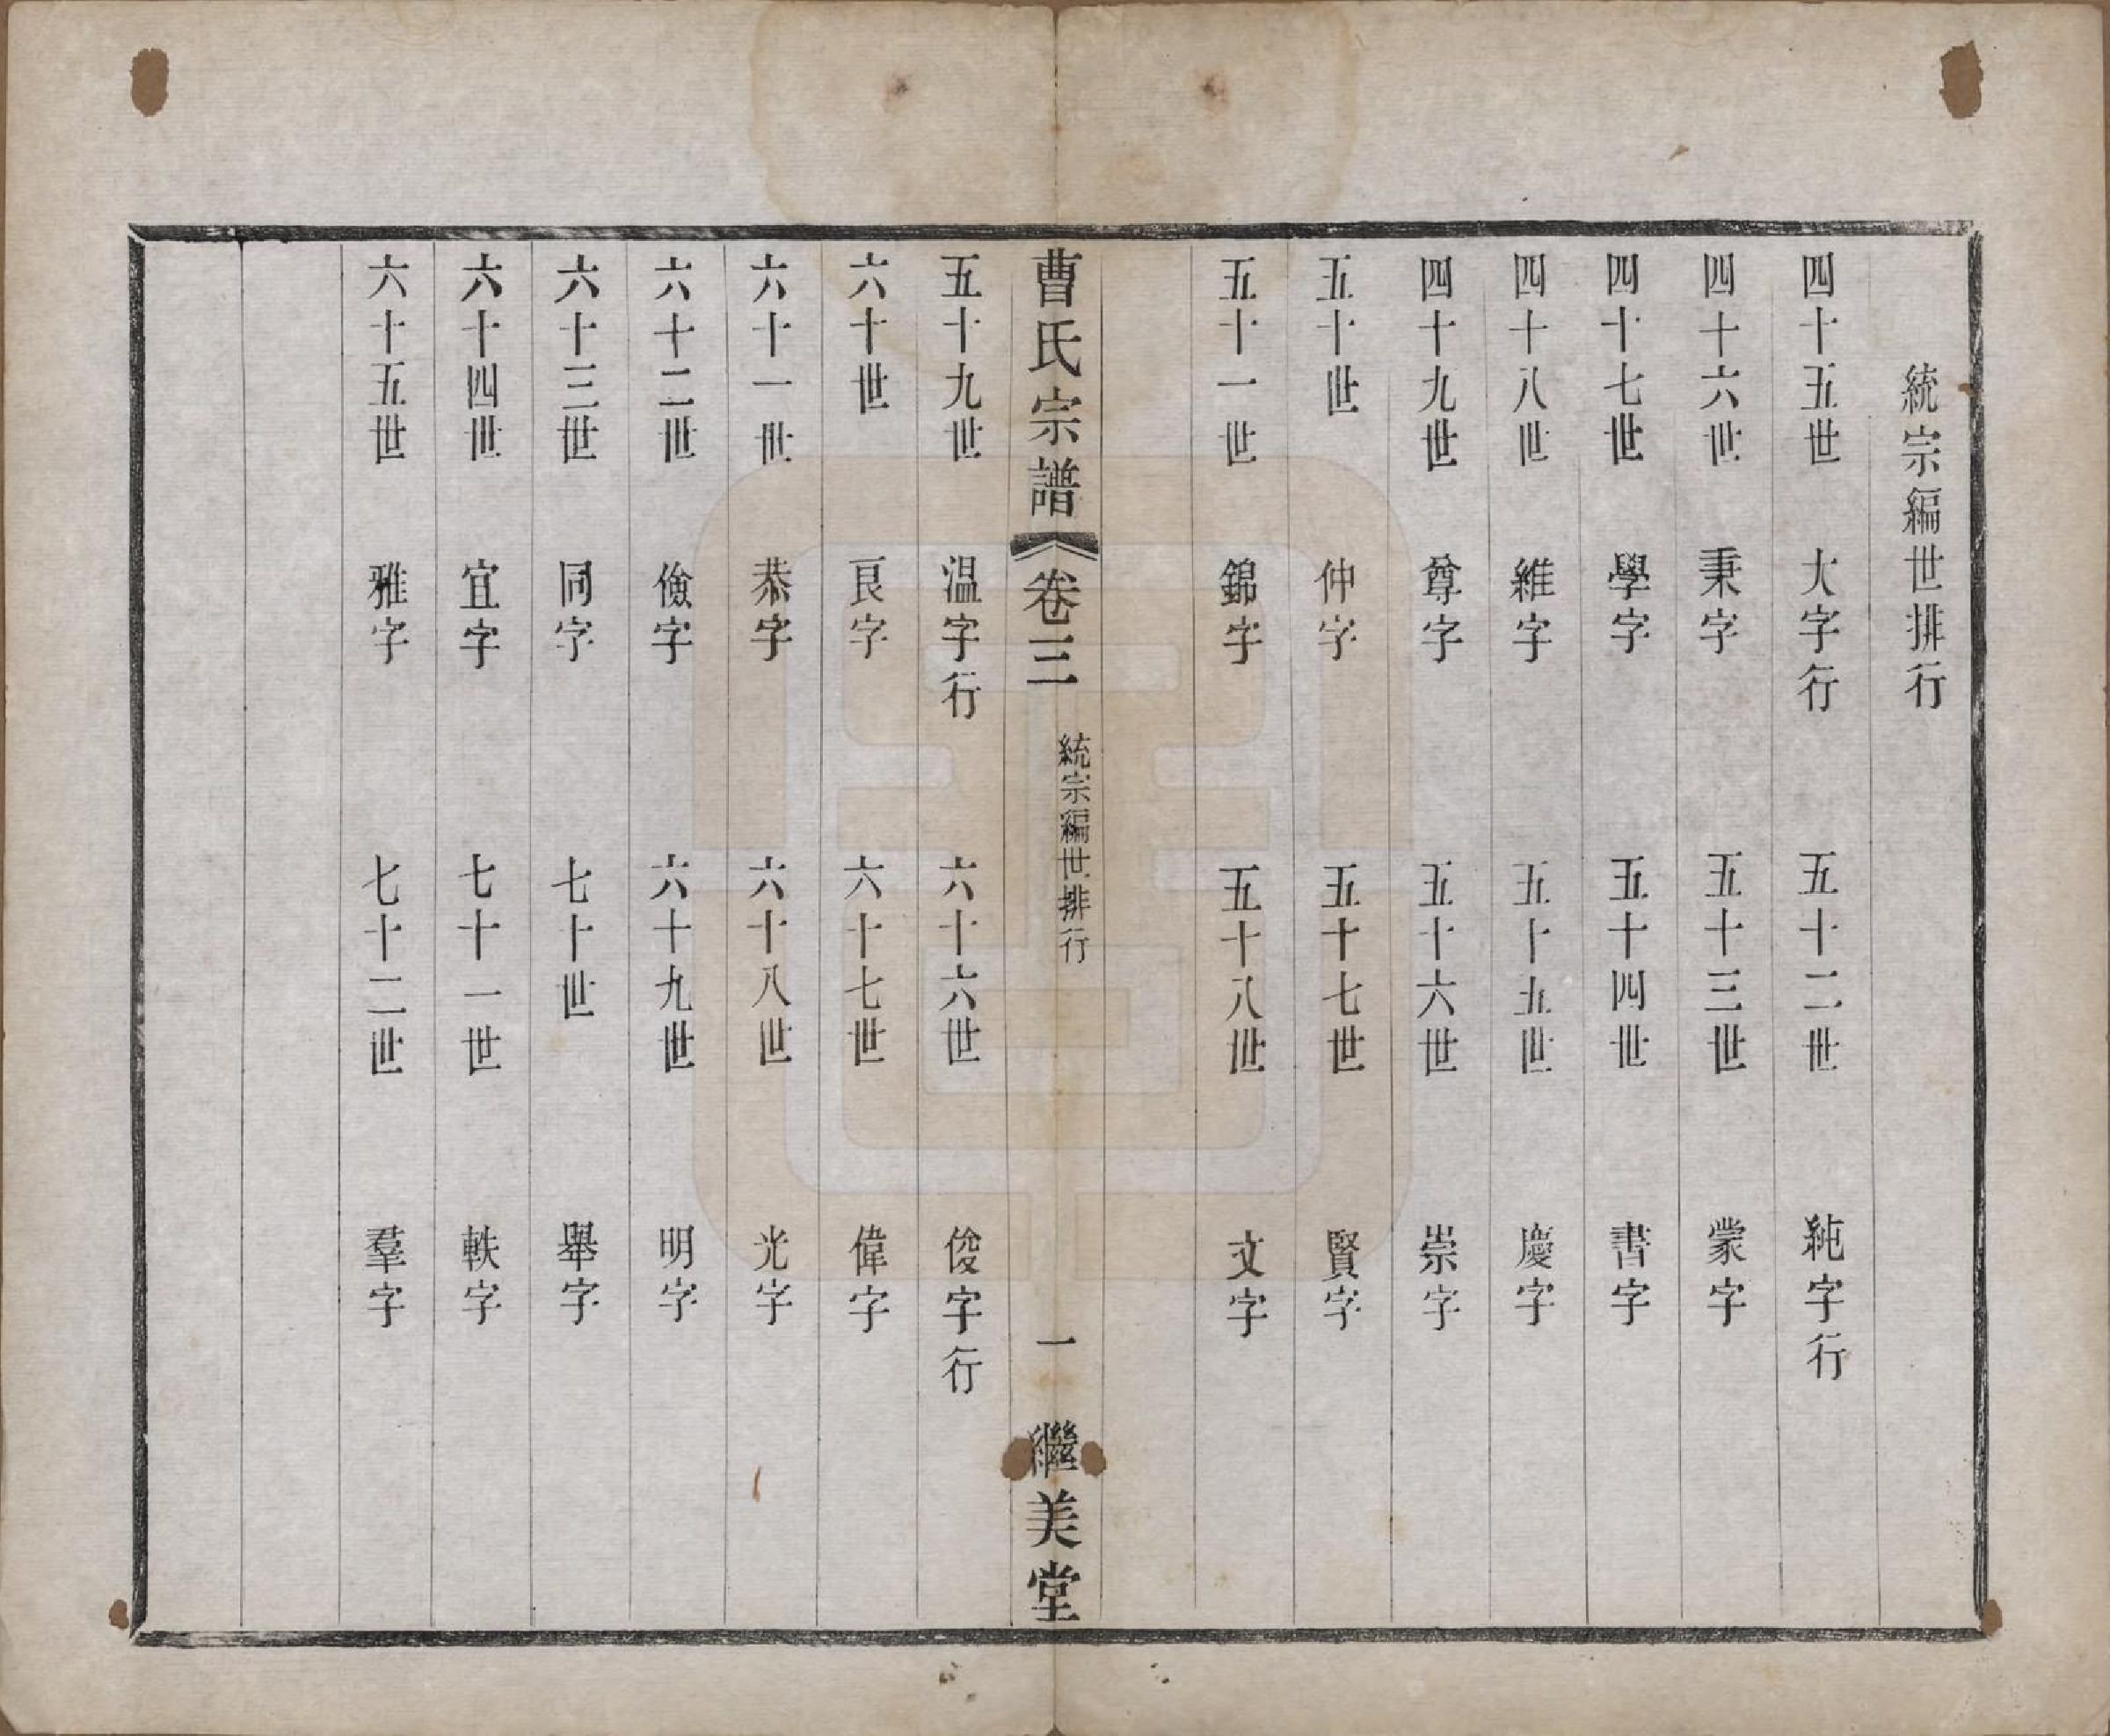 統宗編世排行
四十五世 大字行 五十二世 純字行
四十六世 秉字 五十三世 蒙字
四十七世 學字 五十四世 書字
四十八世 維字 五十五世 慶字
四十九世 尊字 五十六世 崇字
五十世 仲字 五十七世 賢字
五十一世 錦字 五十八世 文字
曹氏宗譜 卷三 統宗編世排行 一 繼美堂
五十九世 温字行 六十六世 俊字行
六十世 良字 六十七世 偉字
六十一世 恭字 六十八世 光字
六十二世 儉字 六十九世 明字
六十三世 同字 七十世 舉字
六十四世 宜字 七十一世 軼字
六十五世 雅字 七十二世 羣字